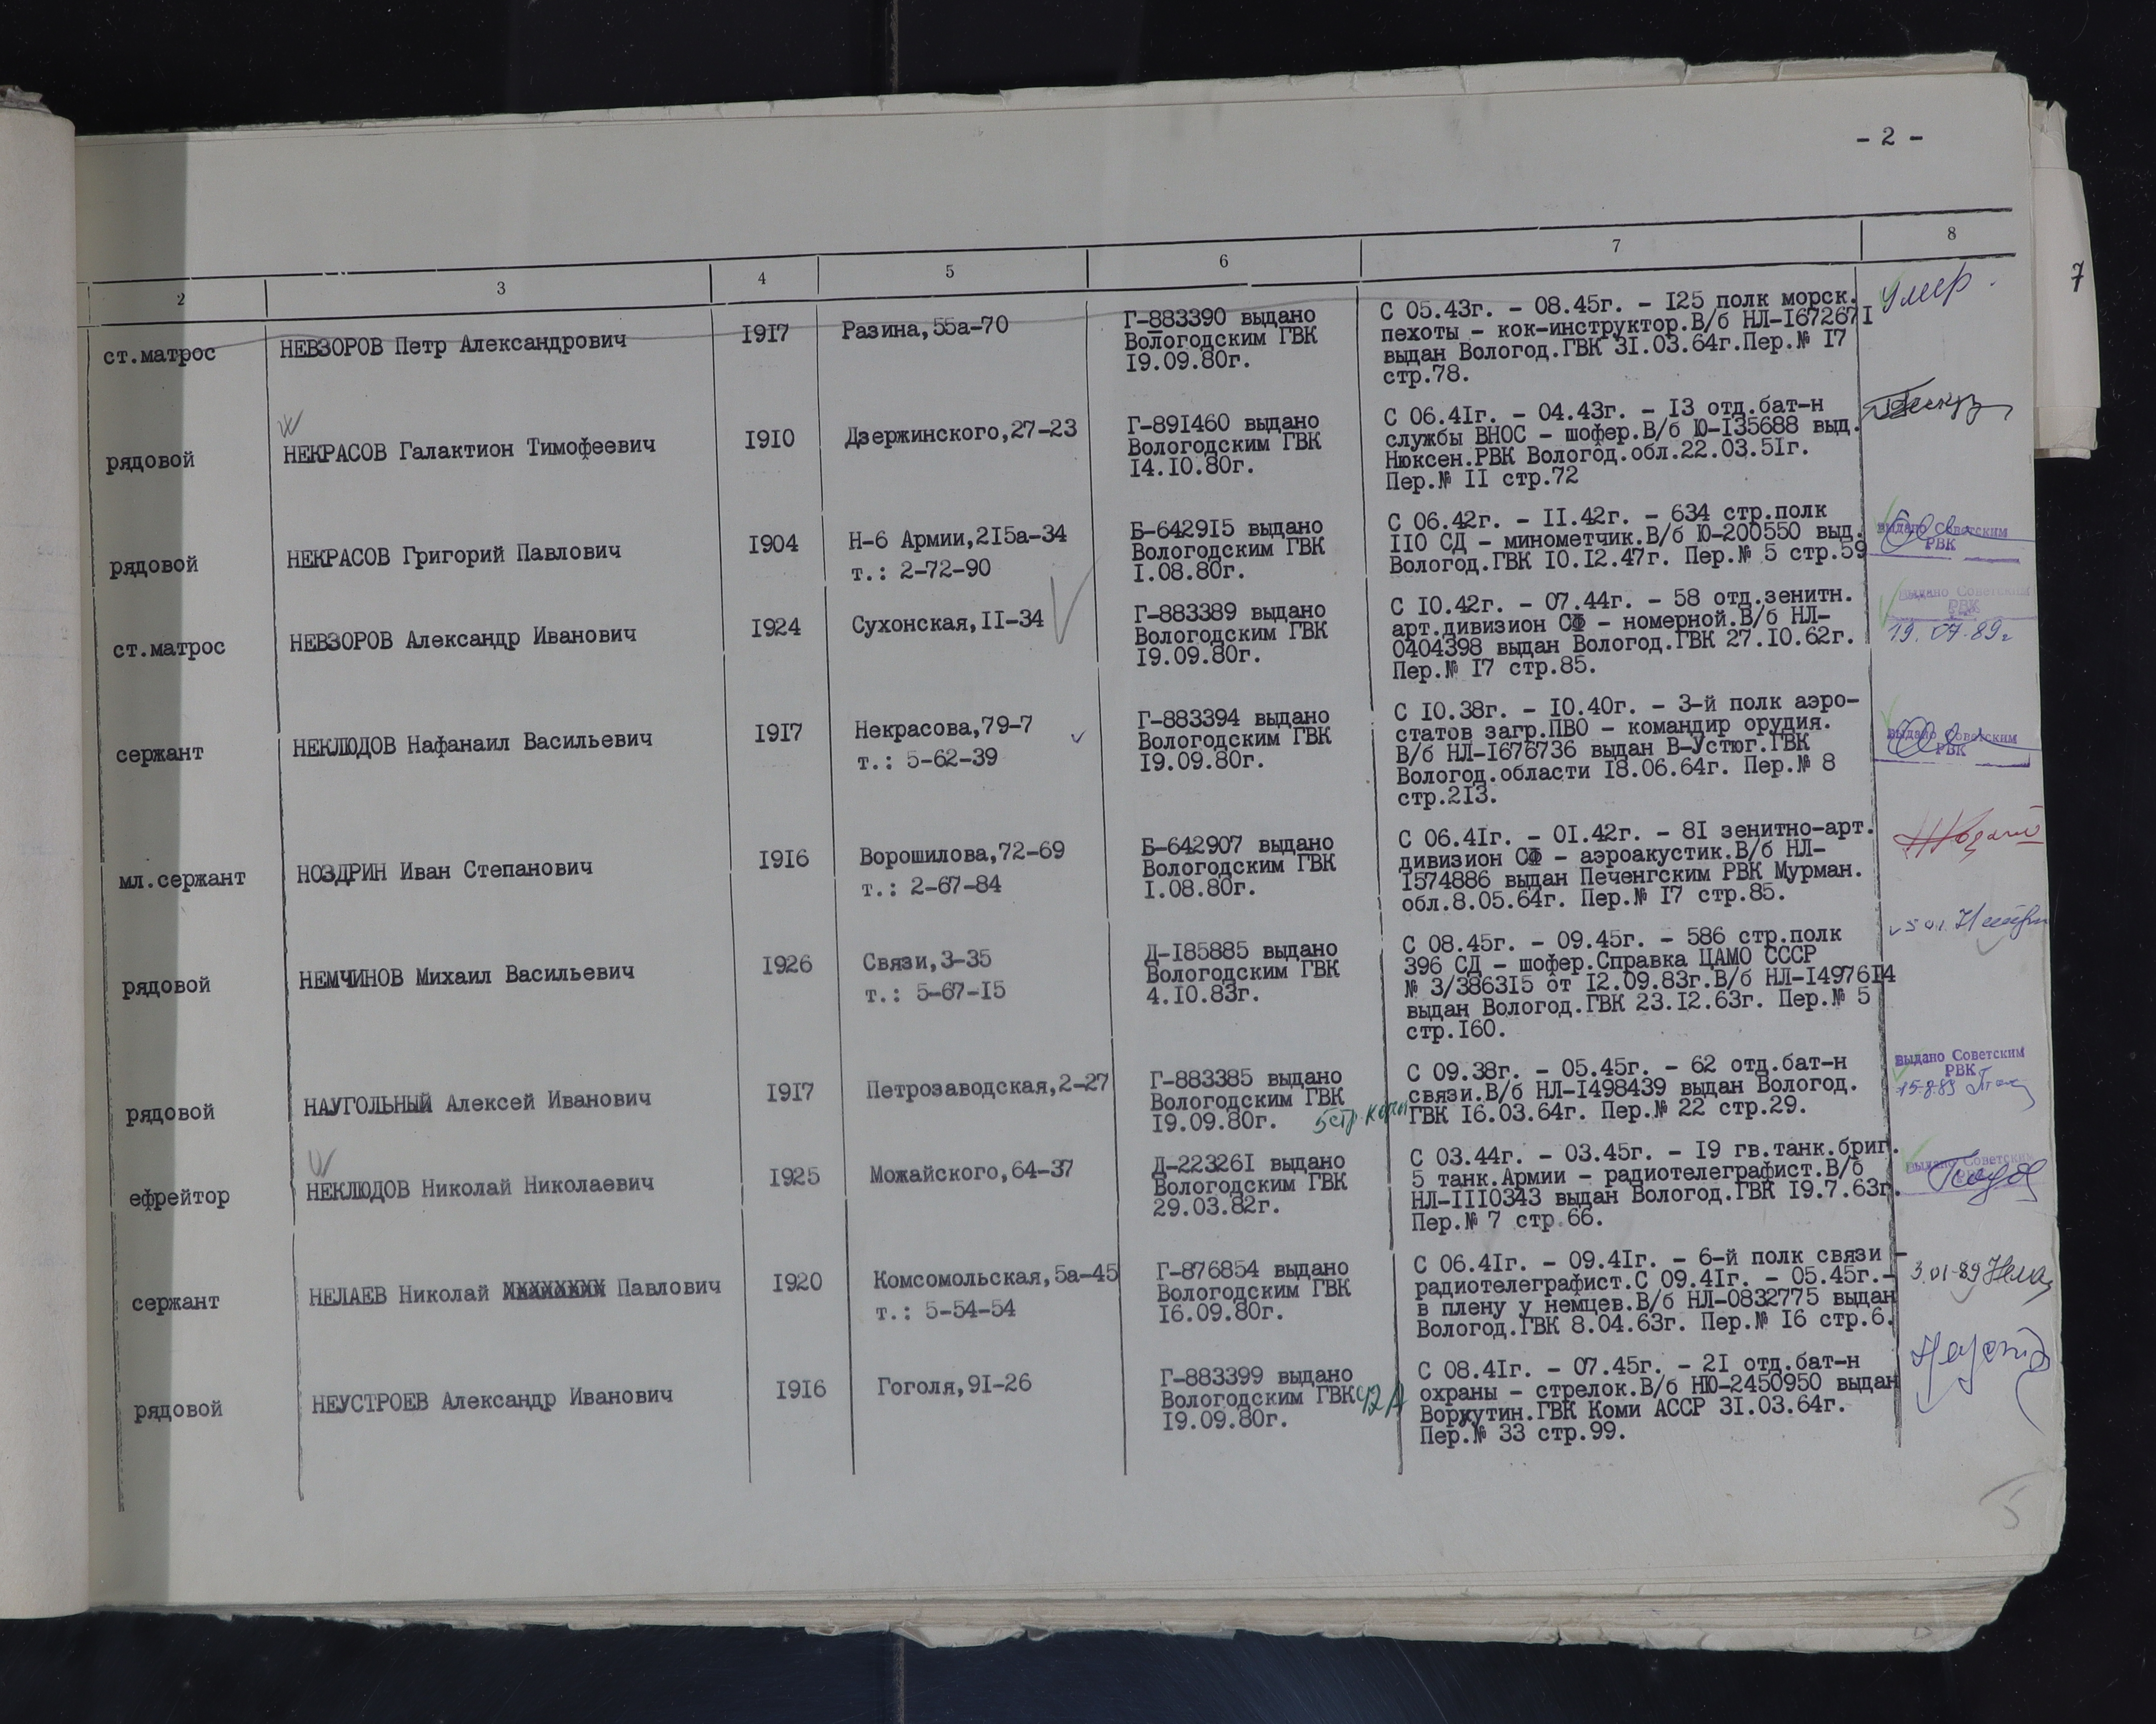 - 2 -
7
2 3 4 5 6 7 8
ст.матрос НЕВЗОРОВ Петр Александрович 1917 Разина,55а-70 Г-883390 выдано С 05.43г. - 08.45г. - 125 полк морск. умер.
Вологодским ГВК пехоты - кок-инструктор.В/б НЛ-1672671
19.09.80г. выдан Вологод.ГВК 31.03.64г.Пер.№ 17
стр.78.
рядовой НЕКРАСОВ Галактион Тимофеевич 1910 Дзержинского,27-23 Г-891460 выдано С 06.41г. - 04.43г. - 13 отд.бат-н
Вологодским ГВК службы ВНОС - шофер.В/б Ю-135688 выд.
14.10.80г. Нюксен.РВК Вологод.обл.22.03.51г.
Пер.№ 11 стр.72
рядовой НЕКРАСОВ Григорий Павлович 1904 Н-6 Армии,215а-34 Б-642915 выдано С 06.42г. - 11.42г. - 634 стр.полк выдано Советским
т.: 2-72-90 Вологодским ГВК 110 СД - минометчик.В/б Ю-200550 выд. РВК
1.08.80г. Вологод.ГВК 10.12.47г. Пер.№ 5 стр.59
ст.матрос НЕВЗОРОВ Александр Иванович 1924 Сухонская,11-34 Г-883389 выдано С 10.42г. - 07.44г. - 58 отд.зенитн. выдано Советским
Вологодским ГВК арт.дивизион СФ - номерной.В/б НЛ- РВК
19.09.80г. 0404398 выдан Вологод.ГВК 27.10.62г. 19.07.89г
Пер.№ 17 стр.85.
сержант НЕКЛЮДОВ Нафанаил Васильевич 1917 Некрасова,79-7 Г-883394 выдано С 10.38г. - 10.40г. - 3-й полк аэро-
т.: 5-62-39 Вологодским ГВК статов загр.ПВО - командир орудия. выдано Советским
19.09.80г. В/б НЛ-1676736 выдан В-Устюг.ГВК РВК
Вологод.области 18.06.64г. Пер.№ 8
стр.213.
мл.сержант НОЗДРИН Иван Степанович 1916 Ворошилова,72-69 Б-642907 выдано С 06.41г. - 01.42г. - 81 зенитно-арт.
т.: 2-67-84 Вологодским ГВК дивизион СФ - аэроакустик.В/б НЛ-
1.08.80г. 1574886 выдан Печенгским РВК Мурман.
обл.8.05.64г. Пер.№ 17 стр.85.
рядовой НЕМЧИНОВ Михаил Васильевич 1926 Связи,3-35 Д-185885 выдано С 08.45г. - 09.45г. - 586 стр.полк
т.: 5-67-15 Вологодским ГВК 396 СД - шофер.Справка ЦАМО СССР
4.10.83г. № 3/386315 от 12.09.83г.В/б НЛ-1497614
выдан Вологод.ГВК 23.12.63г. Пер.№ 5
стр.160.
рядовой НАУГОЛЬНЫЙ Алексей Иванович 1917 Петрозаводская,2-27 Г-883385 выдано С 09.38г. - 05.45г. - 62 отд.бат-н выдано Советским
Вологодским ГВК связи.В/б НЛ-1498439 выдан Вологод. РВК
19.09.80г. ГВК 16.03.64г. Пер.№ 22 стр.29. 15.8.89
ефрейтор НЕКЛЮДОВ Николай Николаевич 1925 Можайского,64-37 Д-223261 выдано С 03.44г. - 03.45г. - 19 гв.танк.бриг. выдано Советским
Вологодским ГВК 5 танк.Армии - радиотелеграфист.В/б
29.03.82г. НЛ-1110343 выдан Вологод.ГВК 19.7.63г.
Пер.№ 7 стр.66.
сержант НЕЛАЕВ Николай Павлович 1920 Комсомольская,5а-45 Г-876854 выдано С 06.41г. - 09.41г. - 6-й полк связи -
т.: 5-54-54 Вологодским ГВК радиотелеграфист.С 09.41г. - 05.45г.- 3.01-89
16.09.80г. в плену у немцев.В/б НЛ-0832775 выдан
Вологод.ГВК 8.04.63г. Пер.№ 16 стр.6.
рядовой НЕУСТРОЕВ Александр Иванович 1916 Гоголя,91-26 Г-883399 выдано С 08.41г. - 07.45г. - 21 отд.бат-н
Вологодским ГВК охраны - стрелок.В/б НЮ-2450950 выдан
19.09.80г. Воркутин.ГВК Коми АССР 31.03.64г.
Пер.№ 33 стр.99.